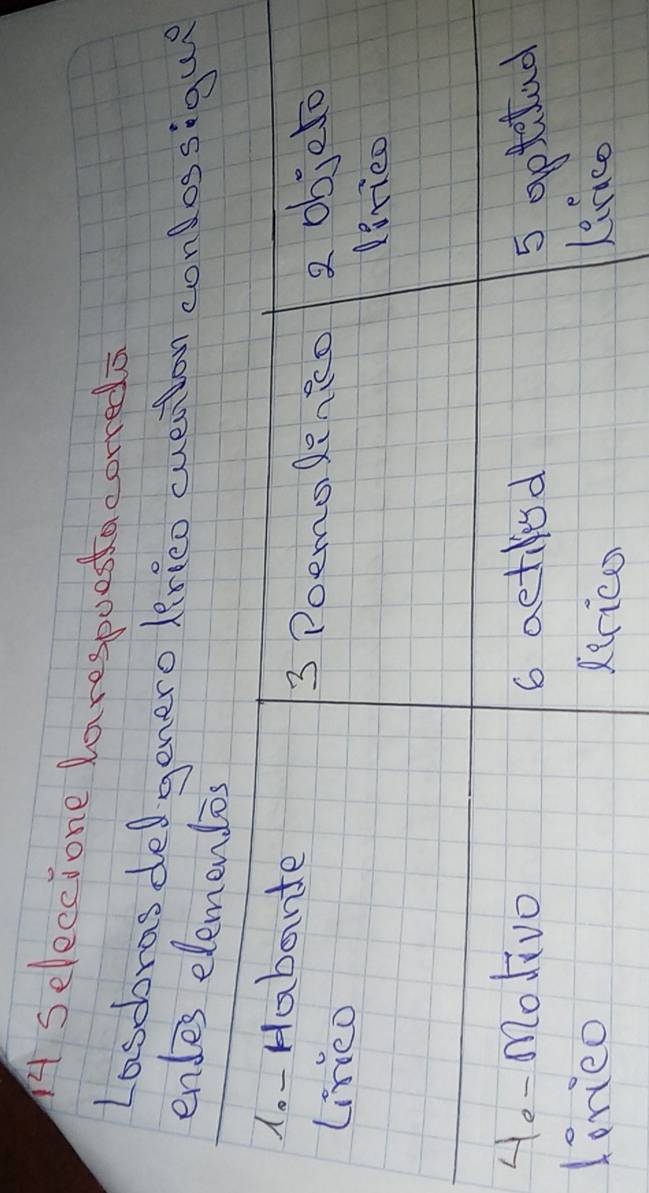 14 Seleccione la respuesta correcta
Las obras del genero lírico cuentan con los sigui
entes elementos
1.- Habante
Lírico
3 Poema lírico
2 objeto
lírico
4.- Motivo
lírico
6 actitud
lírica
5 aptitud
Lírico